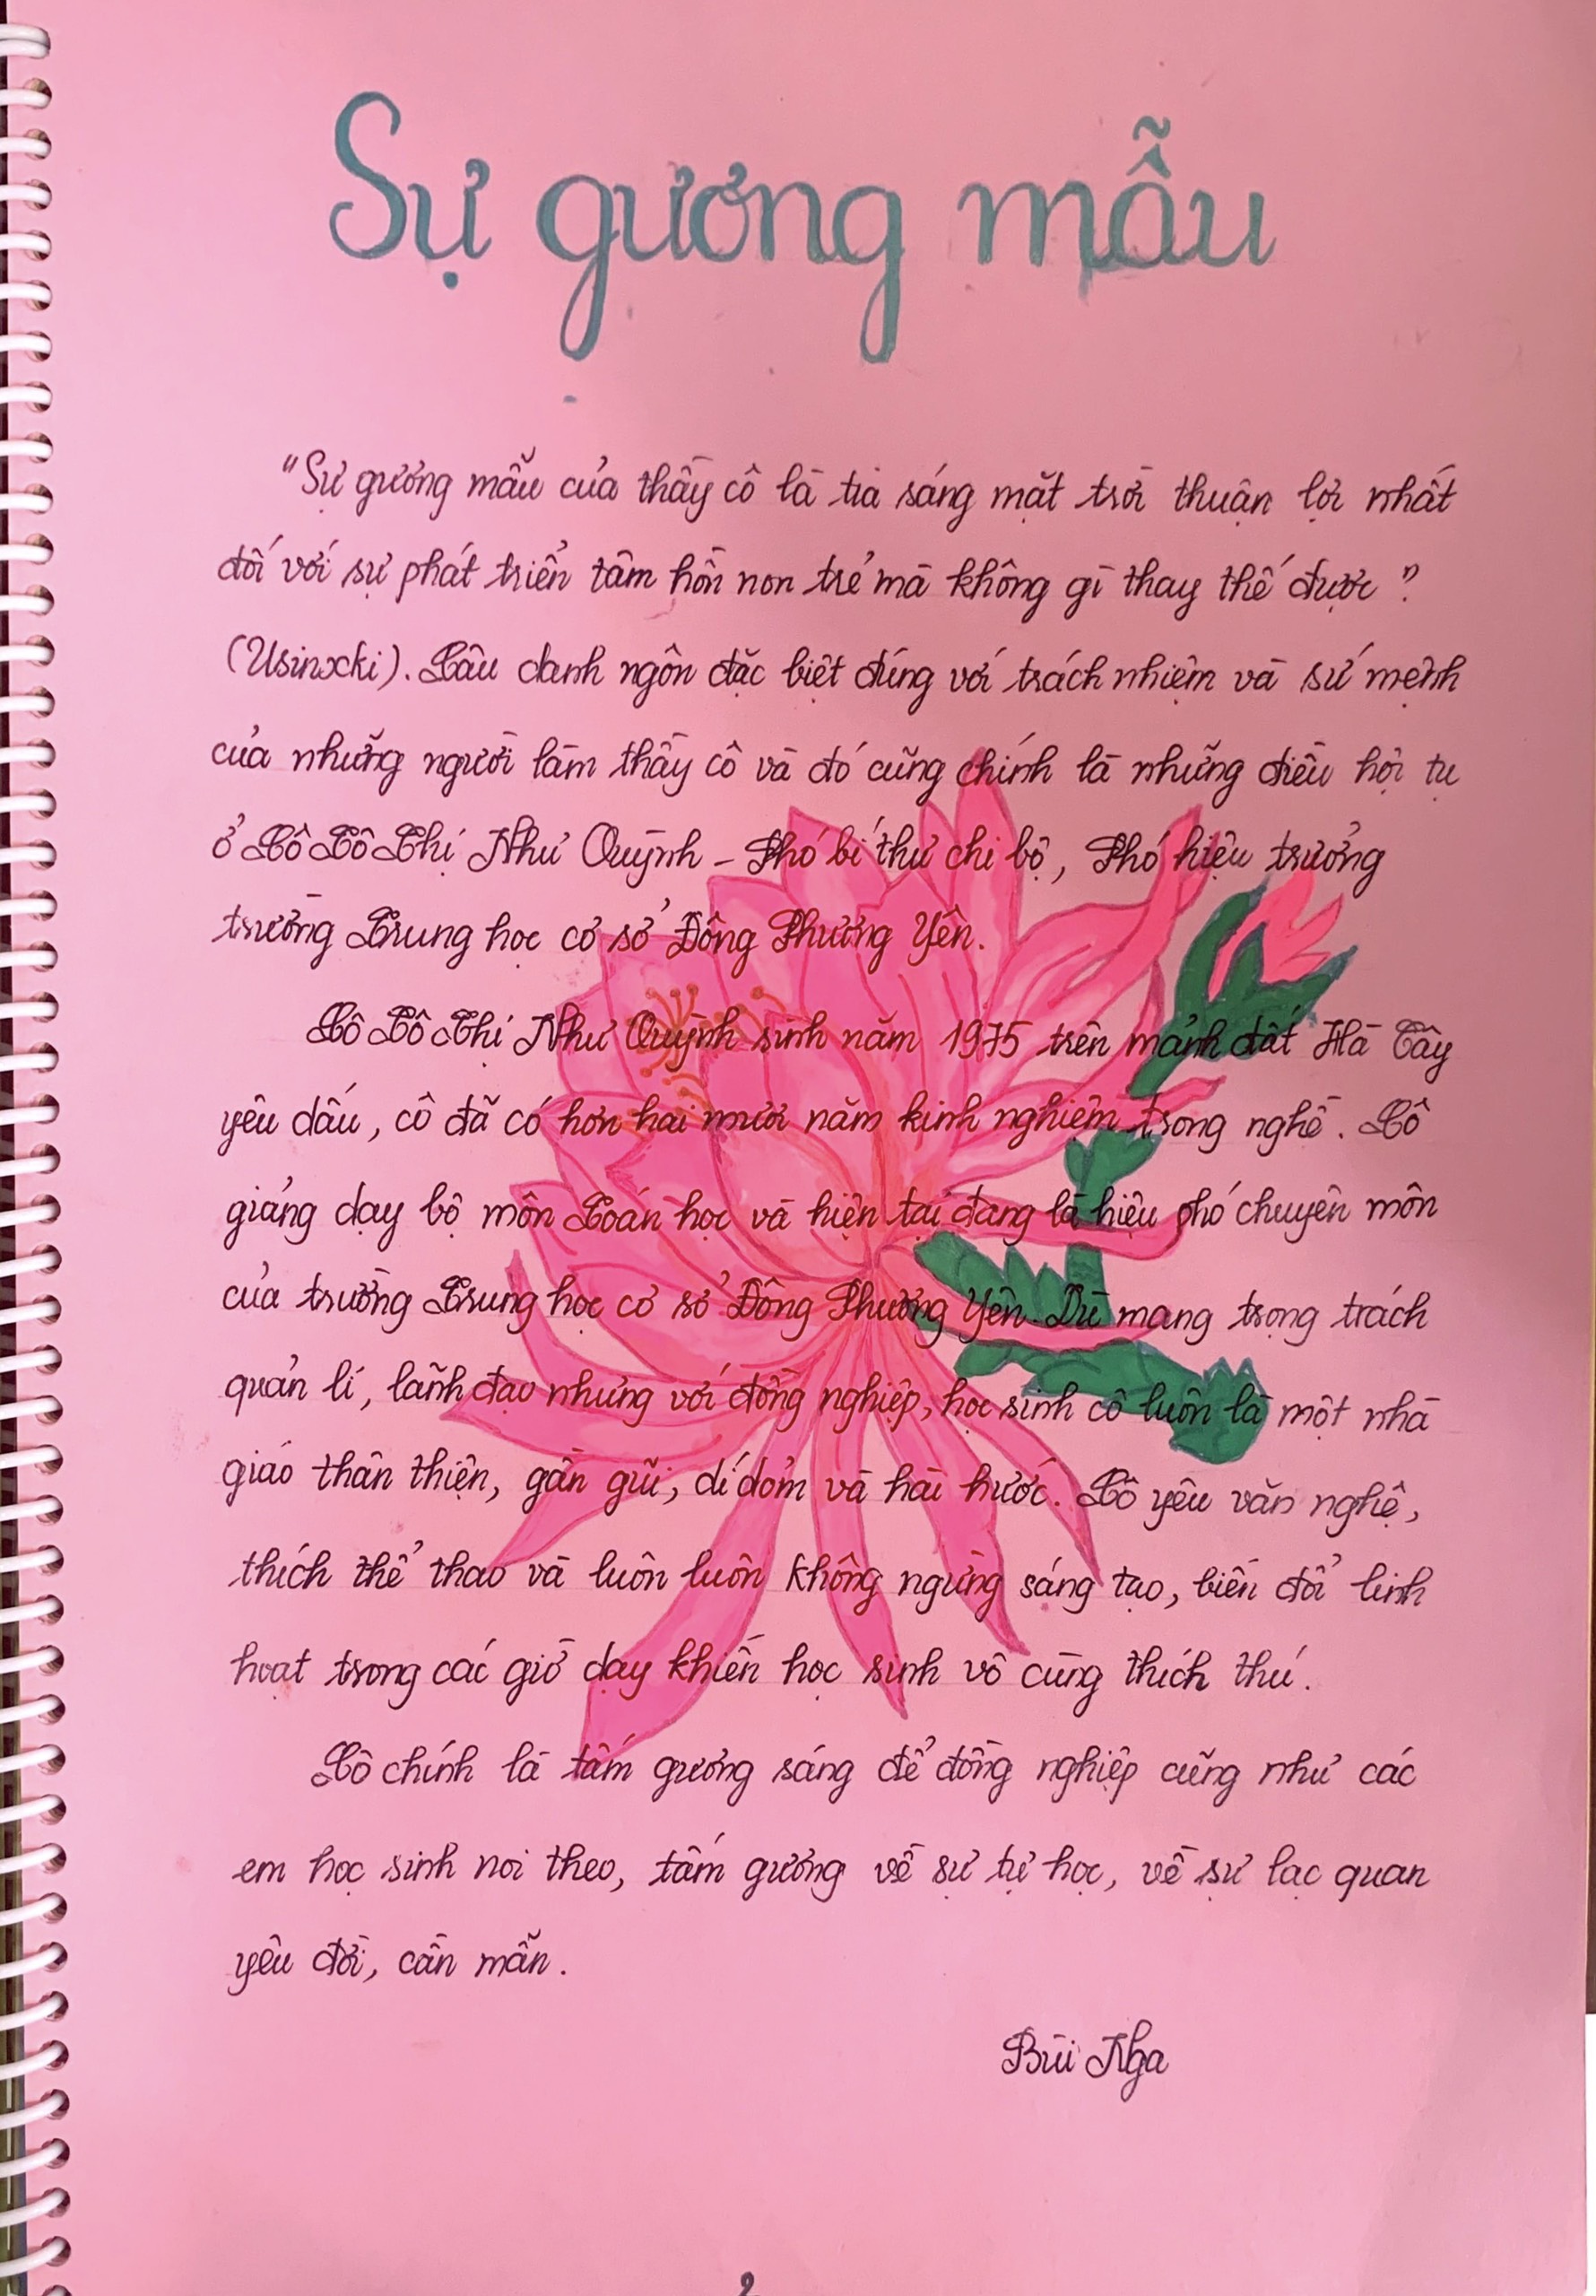 Sự gương mẫu
"Sự gương mẫu của thầy cô là tia sáng mặt trời thuận lợi nhất
đối với sự phát triển tâm hồn non trẻ mà không gì thay thế được"
(Usinxki). Câu danh ngôn đặc biệt đúng với trách nhiệm và sứ mệnh
của những người làm thầy cô và đó cũng chính là những điều hội tụ
ở Cô Tô Thị Như Quỳnh - Phó bí thư chi bộ, Phó hiệu trưởng
trường Trung học cơ sở Đông Phương Yên.
Cô Tô Thị Như Quỳnh sinh năm 1975 trên mảnh đất Hà Tây
yêu dấu, cô đã có hơn hai mươi năm kinh nghiệm trong nghề. Cô
giảng dạy bộ môn Toán học và hiện tại đang là hiệu phó chuyên môn
của trường Trung học cơ sở Đông Phương Yên. Dù mang trọng trách
quản lí, lãnh đạo nhưng với đồng nghiệp, học sinh cô luôn là một nhà
giáo thân thiện, gần gũi, dí dỏm và hài hước. Cô yêu văn nghệ,
thích thể thao và luôn luôn không ngừng sáng tạo, biến đổi linh
hoạt trong các giờ dạy khiến học sinh vô cùng thích thú.
Cô chính là tấm gương sáng để đồng nghiệp cũng như các
em học sinh noi theo, tấm gương về sự tự học, về sự lạc quan
yêu đời, cần mẫn.
Bùi Nga
2